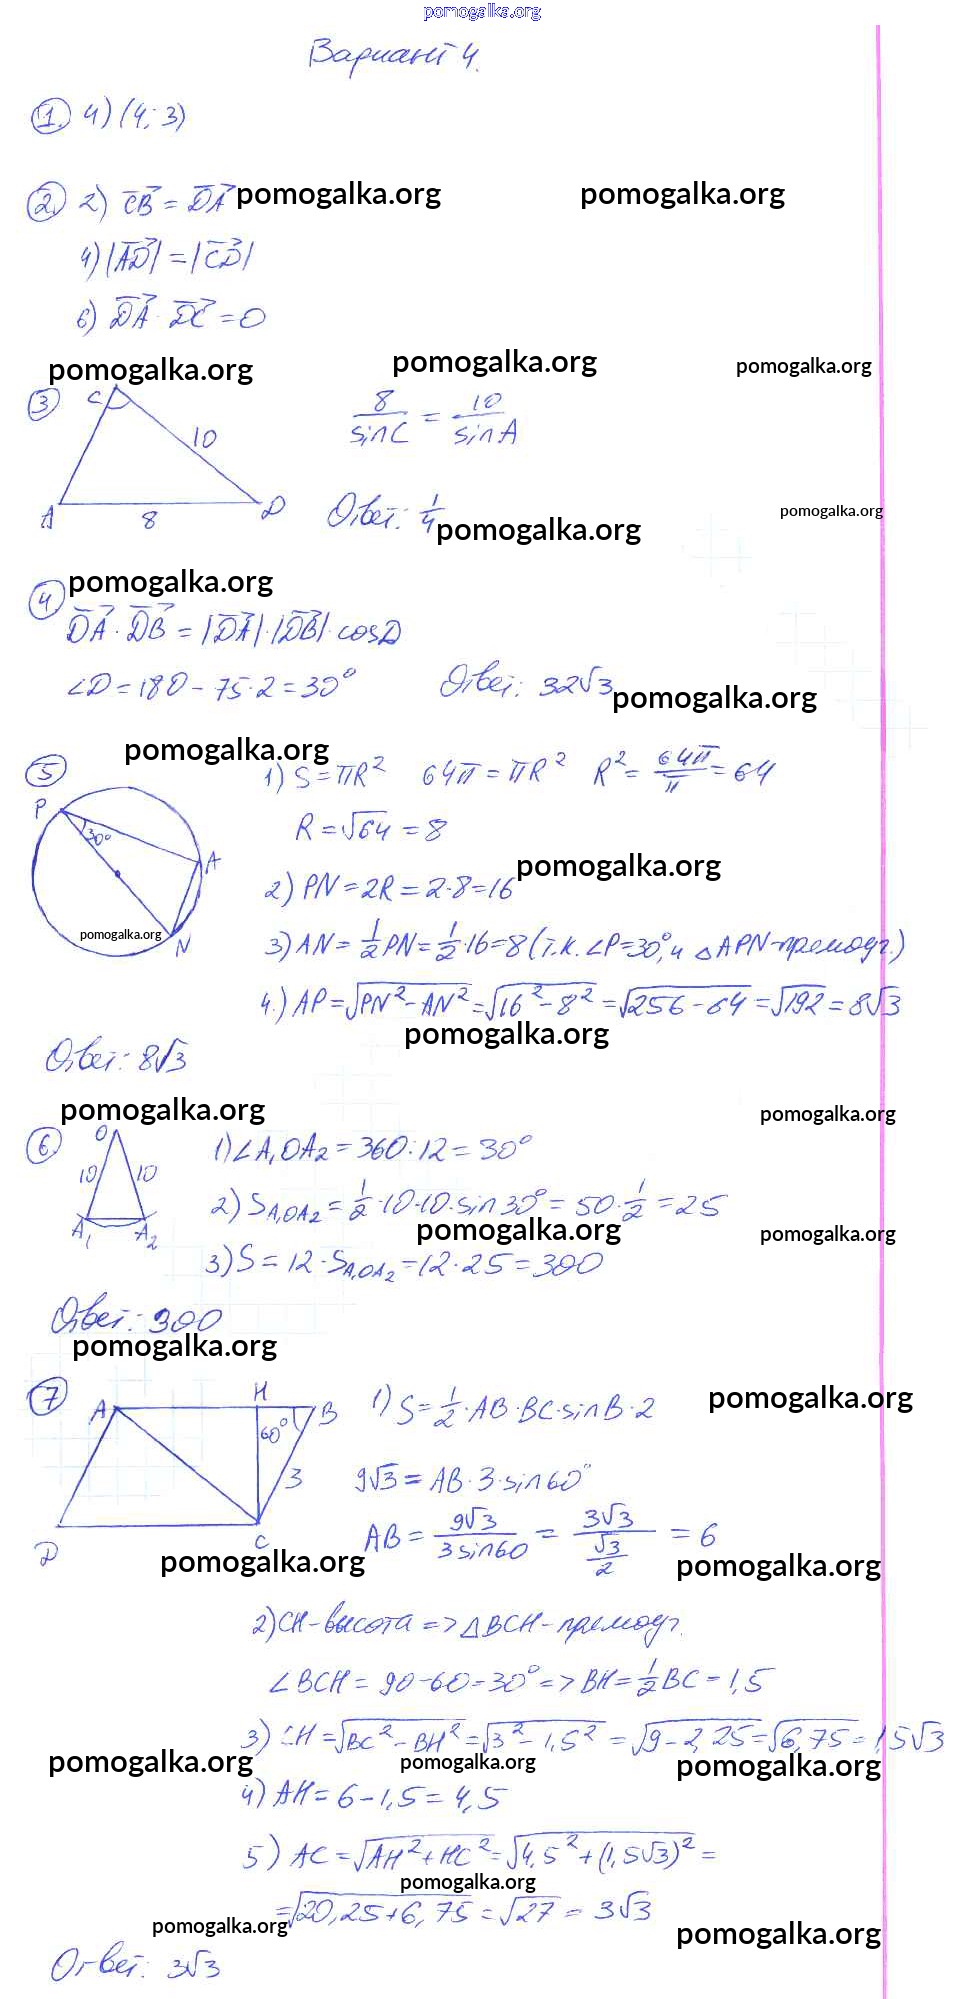 pomogalka.org
Вариант 4.
1. 4) (4; 3)
2. 2) CB = DA pomogalka.org pomogalka.org
4) |AD| = |CD|
6) DA · DC = 0
pomogalka.org pomogalka.org pomogalka.org
3 C 10 A 8 D
8/sinC = 10/sinA
Ответ: 1/4 pomogalka.org pomogalka.org
pomogalka.org
4 DA · DB = |DA|·|DB|· cosD
∠D = 180 - 75·2 = 30° Ответ: 32√3 pomogalka.org
pomogalka.org
5 P 30° A N pomogalka.org
1) S = πR² 64π = πR² R² = 64π/π = 64
R = √64 = 8
pomogalka.org
2) PN = 2R = 2·8 = 16
3) AN = 1/2 PN = 1/2 · 16 = 8 (т.к. ∠P = 30°, и △APN - прямоуг.)
4.) AP = √(PN² - AN²) = √(16² - 8²) = √(256 - 64) = √192 = 8√3
pomogalka.org
Ответ: 8√3
pomogalka.org pomogalka.org
6. O 10 10 A₁ A₂
1) ∠A₁OA₂ = 360 : 12 = 30°
2) S A₁OA₂ = 1/2 · 10 · 10 · sin 30° = 50 · 1/2 = 25
pomogalka.org pomogalka.org
3) S = 12 · S A₁OA₂ = 12 · 25 = 300
Ответ: 300
pomogalka.org
7 A H B 60° 3 D C
1) S = 1/2 · AB · BC · sin B · 2 pomogalka.org
9√3 = AB · 3 · sin 60°
AB = 9√3/3 sin 60 = 3√3/(√3/2) = 6
pomogalka.org pomogalka.org
2) CH - высота => △BCH - прямоуг.
∠BCH = 90 - 60 = 30° => BH = 1/2 BC = 1,5
3) CH = √(BC² - BH²) = √(3² - 1,5²) = √(9 - 2,25) = √6,75 = 1,5√3
pomogalka.org pomogalka.org pomogalka.org
4) AH = 6 - 1,5 = 4,5
5) AC = √(AH² + HC²) = √(4,5² + (1,5√3)²) =
pomogalka.org
= √(20,25 + 6,75) = √27 = 3√3
pomogalka.org pomogalka.org
Ответ: 3√3